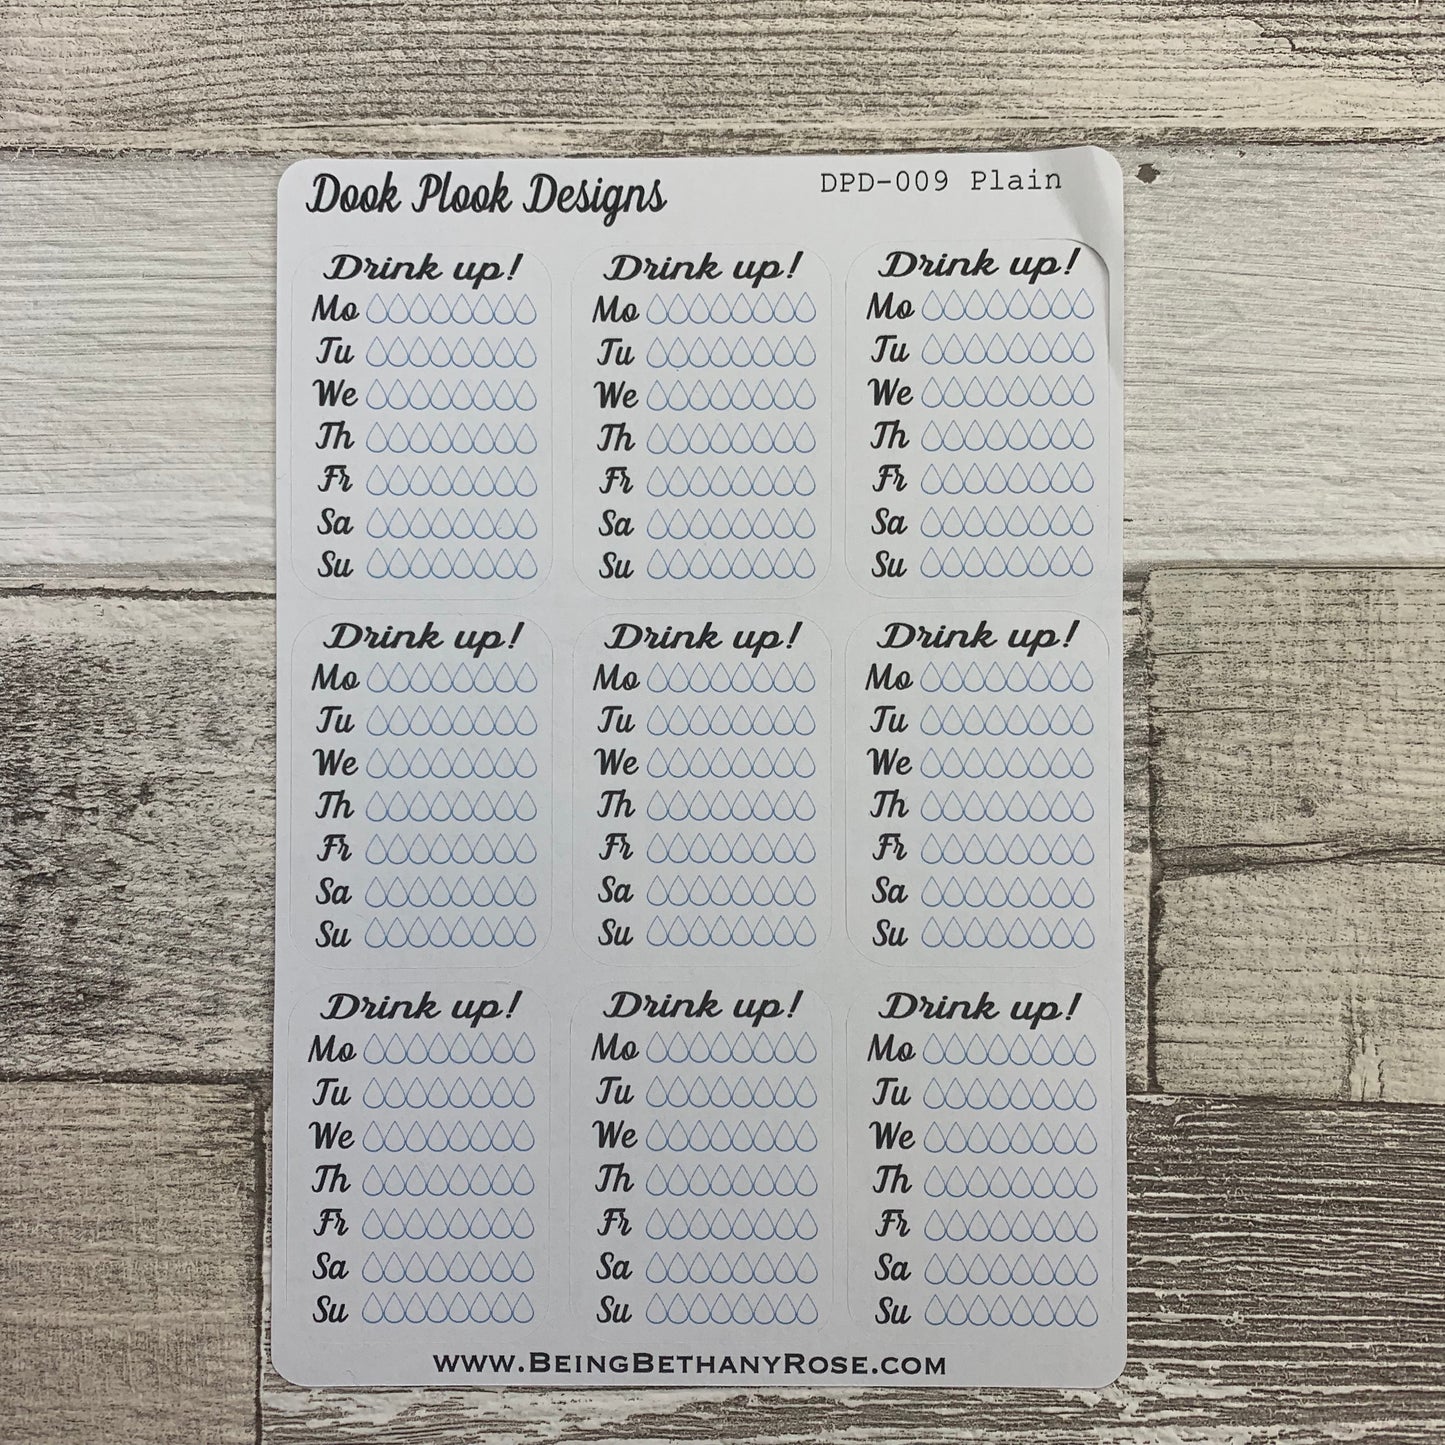 Dook Plook Designs DPD-009 Plain
Drink up! Drink up! Drink up!
Mo Mo Mo
Tu Tu Tu
We We We
Th Th Th
Fr Fr Fr
Sa Sa Sa
Su Su Su
Drink up! Drink up! Drink up!
Mo Mo Mo
Tu Tu Tu
We We We
Th Th Th
Fr Fr Fr
Sa Sa Sa
Su Su Su
Drink up! Drink up! Drink up!
Mo Mo Mo
Tu Tu Tu
We We We
Th Th Th
Fr Fr Fr
Sa Sa Sa
Su Su Su
www.BeingBethanyRose.com